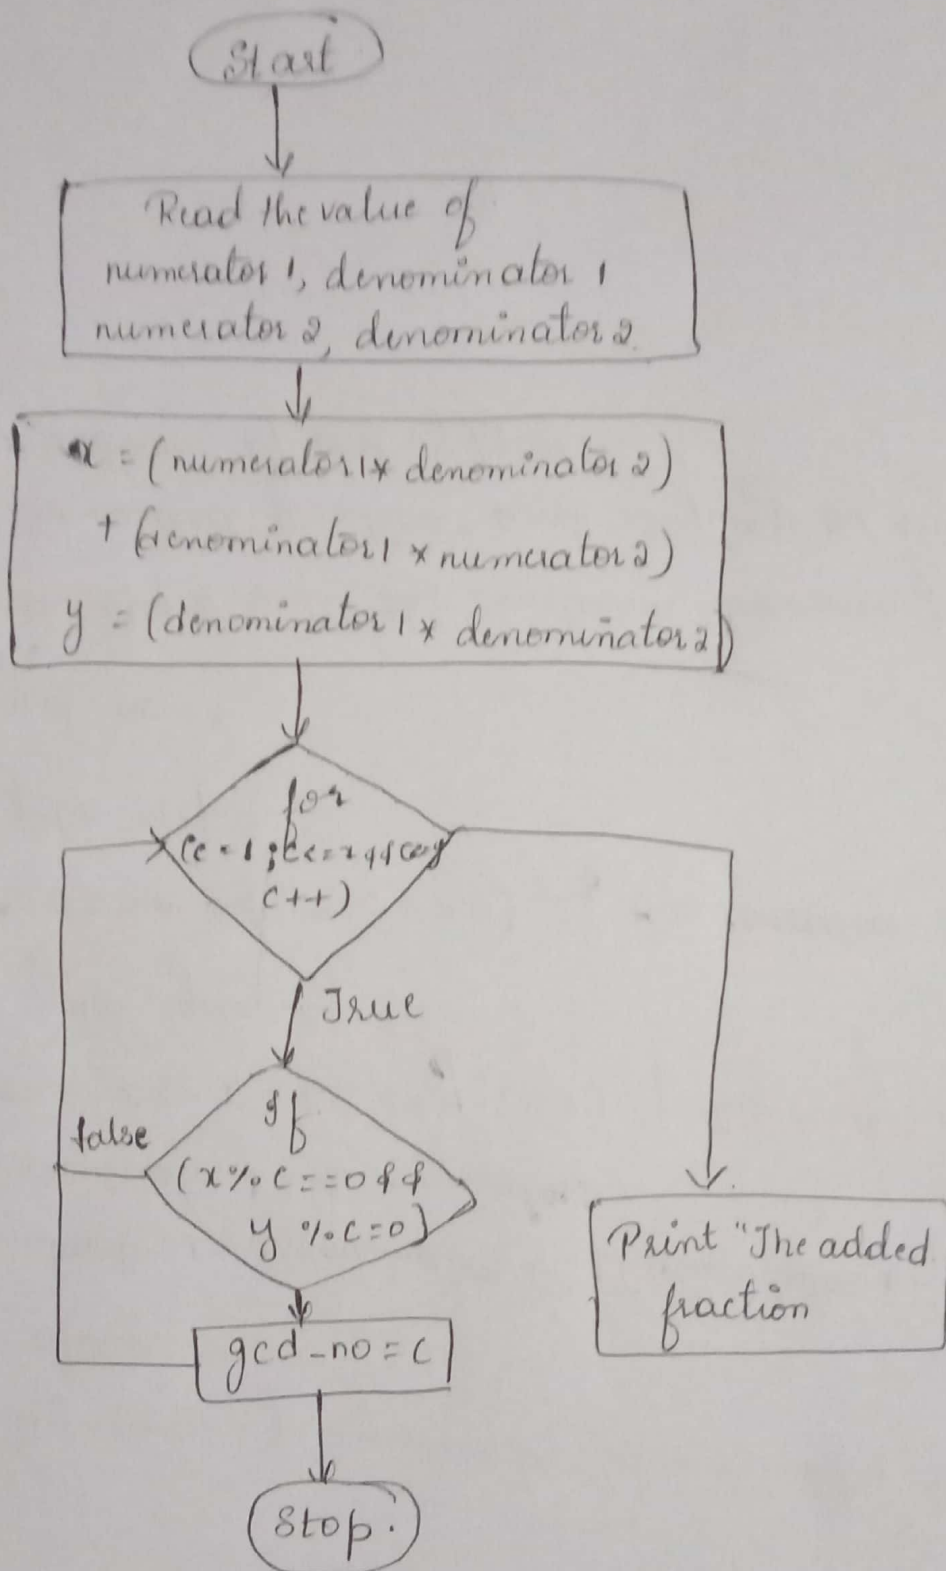 Start
Read the value of
numerator 1, denominator 1
numerator 2, denominator 2
x = (numerator1 * denominator 2)
+ (denominator1 * numerator 2)
y = (denominator 1 * denominator 2)
for
(c = 1 ; c <= x && c <= y
c++)
True
If
false
(x % c == 0 &&
y % c = 0)
Print "The added
fraction
gcd_no = c
Stop.